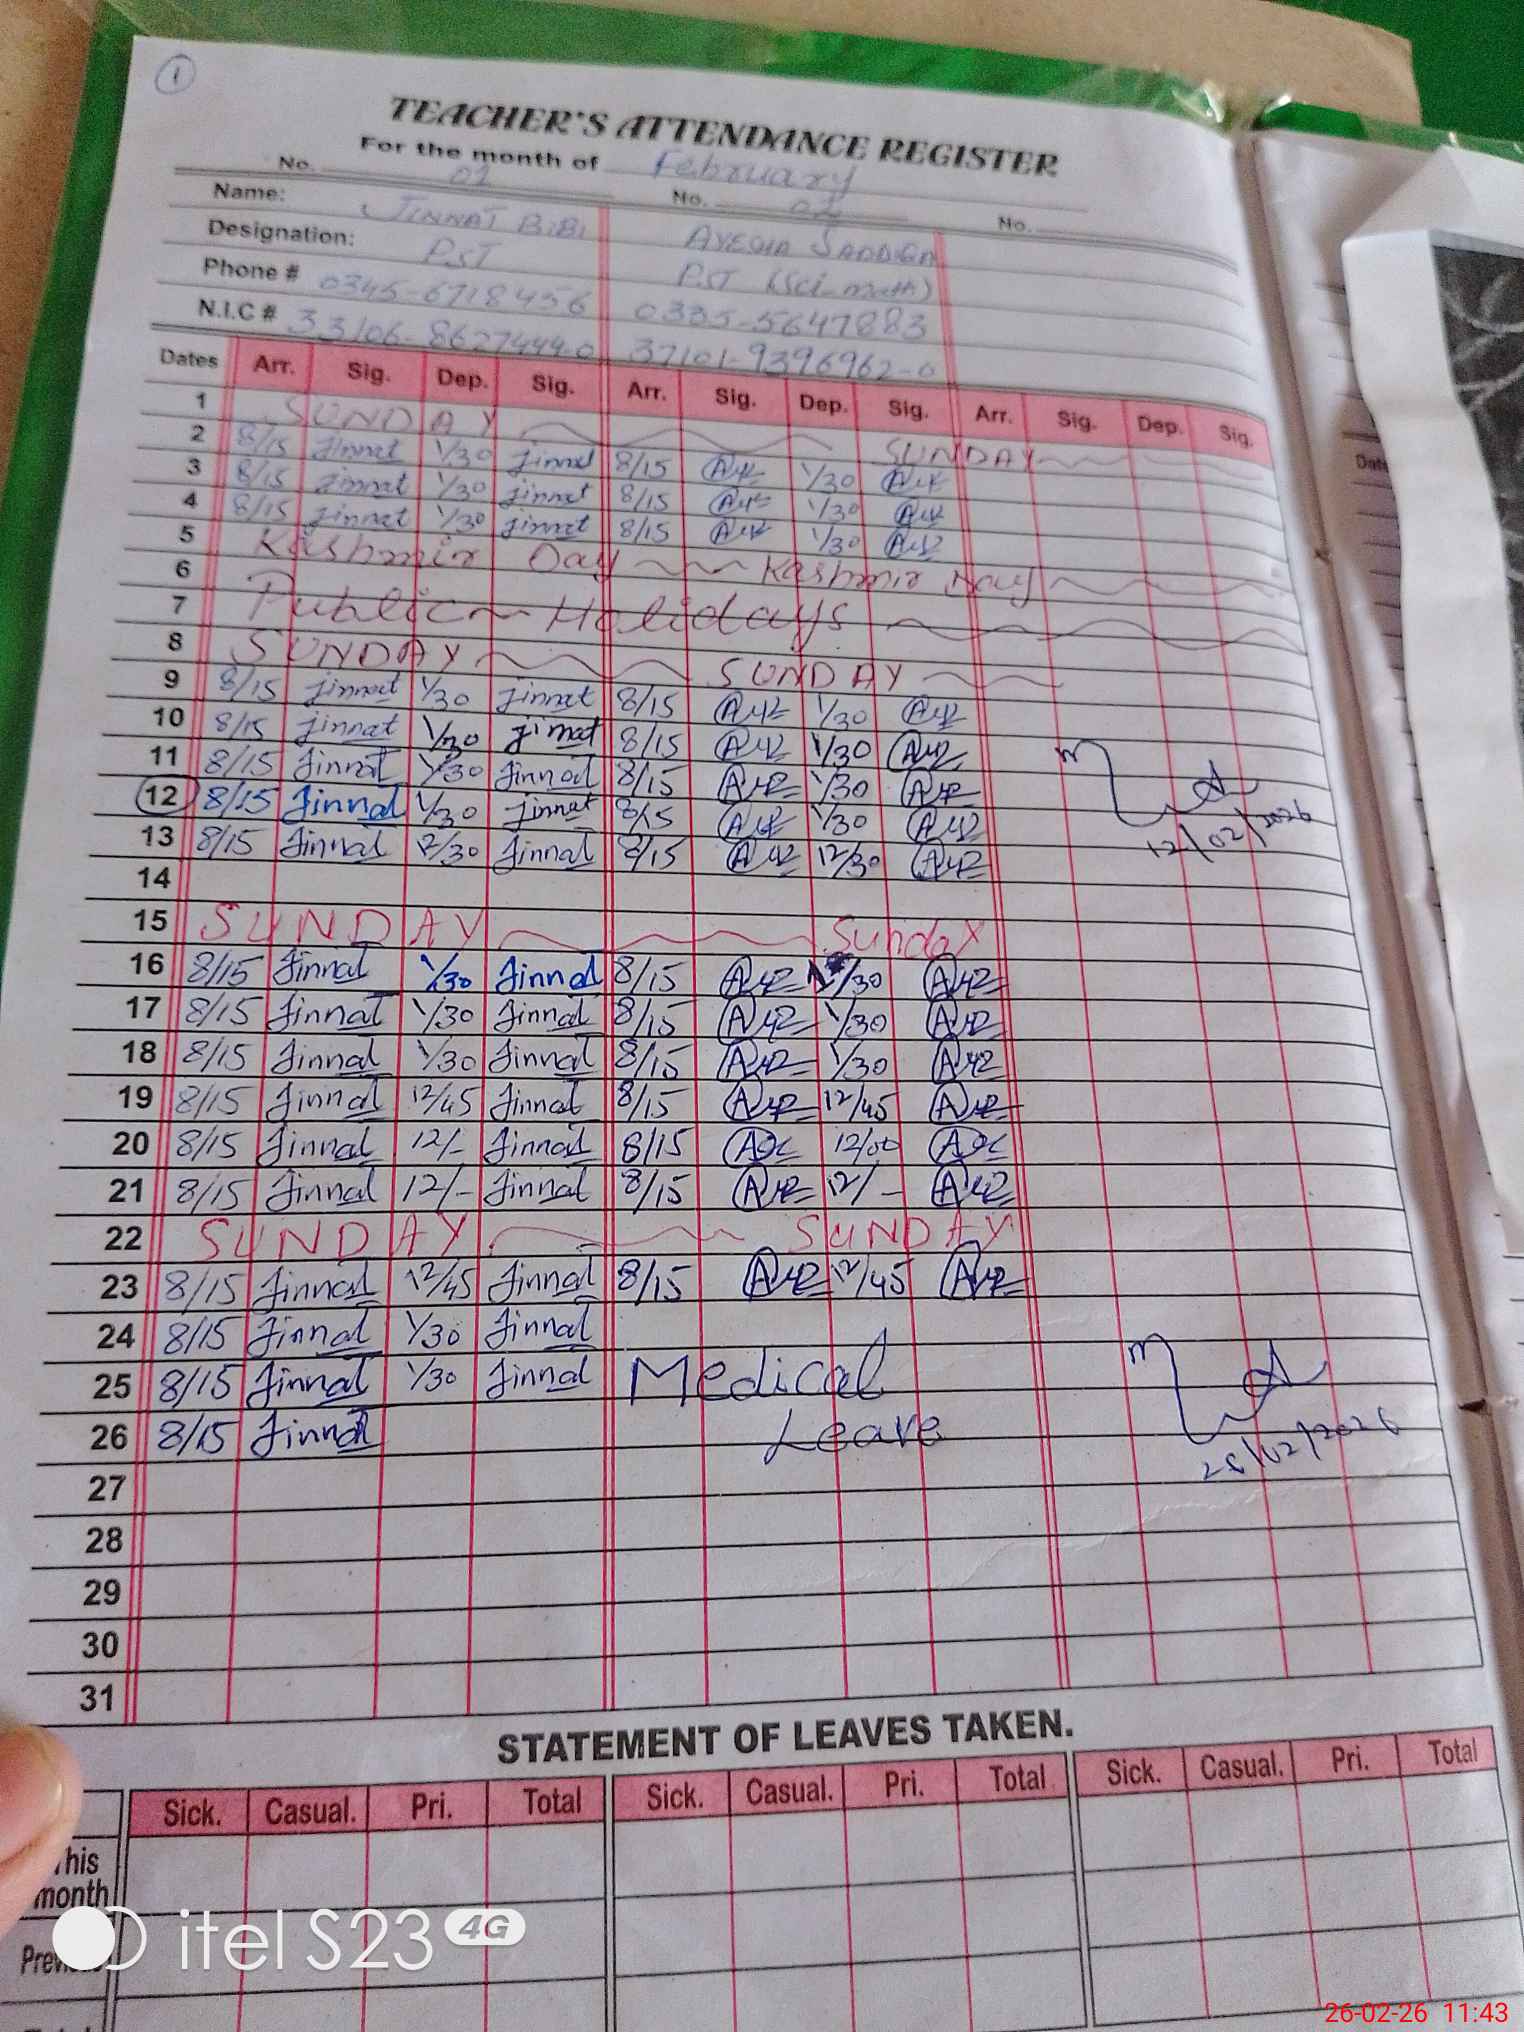 1
TEACHER'S ATTENDANCE REGISTER
For the month of February
No. 01 No. 02 No.
Name: JINNAT BiBi AYESHA SADDIQA
Designation: PST PST (Sci-math)
Phone # 0345-6718456 0335-5647883
N.I.C # 33106-8627444-0 37101-9396962-0
Dates Arr. Sig. Dep. Sig. Arr. Sig. Dep. Sig. Arr. Sig. Dep. Sig.
1 SUNDAY SUNDAY
2 8/15 Jinnat 1/30 Jinnat 8/15 1/30
3 8/15 Jinnat 1/30 Jinnat 8/15 1/30
4 8/15 Jinnat 1/30 Jinnat 8/15 1/30
5 Kashmir Day Kashmir Day
6 Public Holidays
7
8 SUNDAY SUNDAY
9 8/15 Jinnat 1/30 Jinnat 8/15 1/30
10 8/15 Jinnat 1/30 Jinnat 8/15 1/30
11 8/15 Jinnat 1/30 Jinnat 8/15 1/30
12 8/15 Jinnat 1/30 Jinnat 8/15 1/30
12/02/2026
13 8/15 Jinnat 12/30 Jinnat 8/15 12/30
14
15 SUNDAY Sunday
16 8/15 Jinnat 1/30 Jinnat 8/15 1/30
17 8/15 Jinnat 1/30 Jinnat 8/15 1/30
18 8/15 Jinnat 1/30 Jinnat 8/15 1/30
19 8/15 Jinnat 12/45 Jinnat 8/15 12/45
20 8/15 Jinnat 12/- Jinnat 8/15 12/00
21 8/15 Jinnat 12/- Jinnat 8/15 12/-
22 SUNDAY SUNDAY
23 8/15 Jinnat 12/45 Jinnat 8/15 12/45
24 8/15 Jinnat 1/30 Jinnat
25 8/15 Jinnat 1/30 Jinnat Medical
26 8/15 Jinnat Leave
27
28
29
30
31
STATEMENT OF LEAVES TAKEN.
Sick. Casual. Pri. Total Sick. Casual. Pri. Total Sick. Casual. Pri. Total
This
month
itel S23 4G
26-02-26 11:43